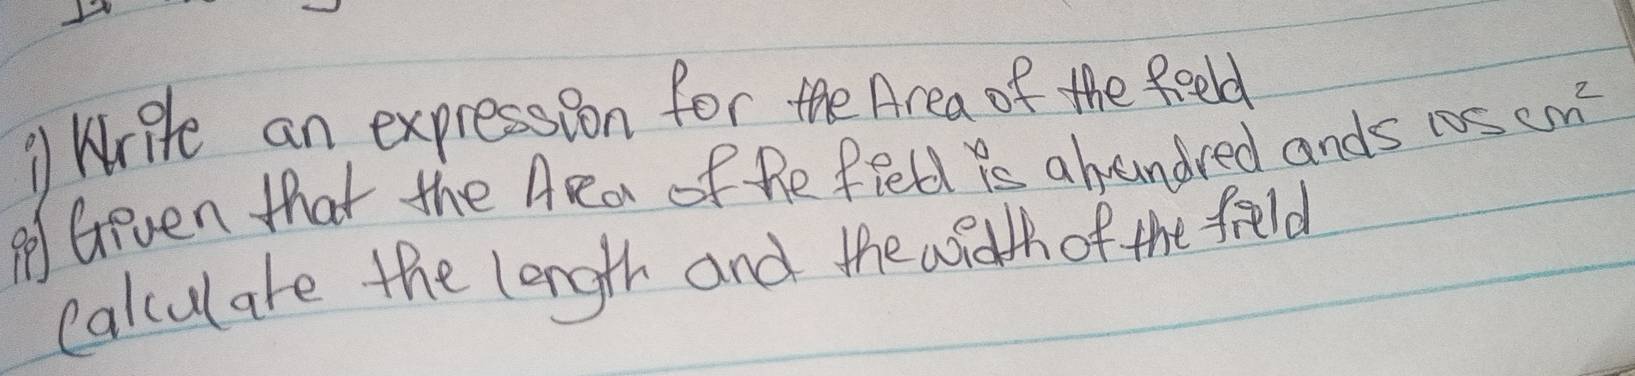 i) Write an expression for the Area of the field
ii) Given that the Area of the field is ahundred ands 105 cm²
calculate the length and the width of the field